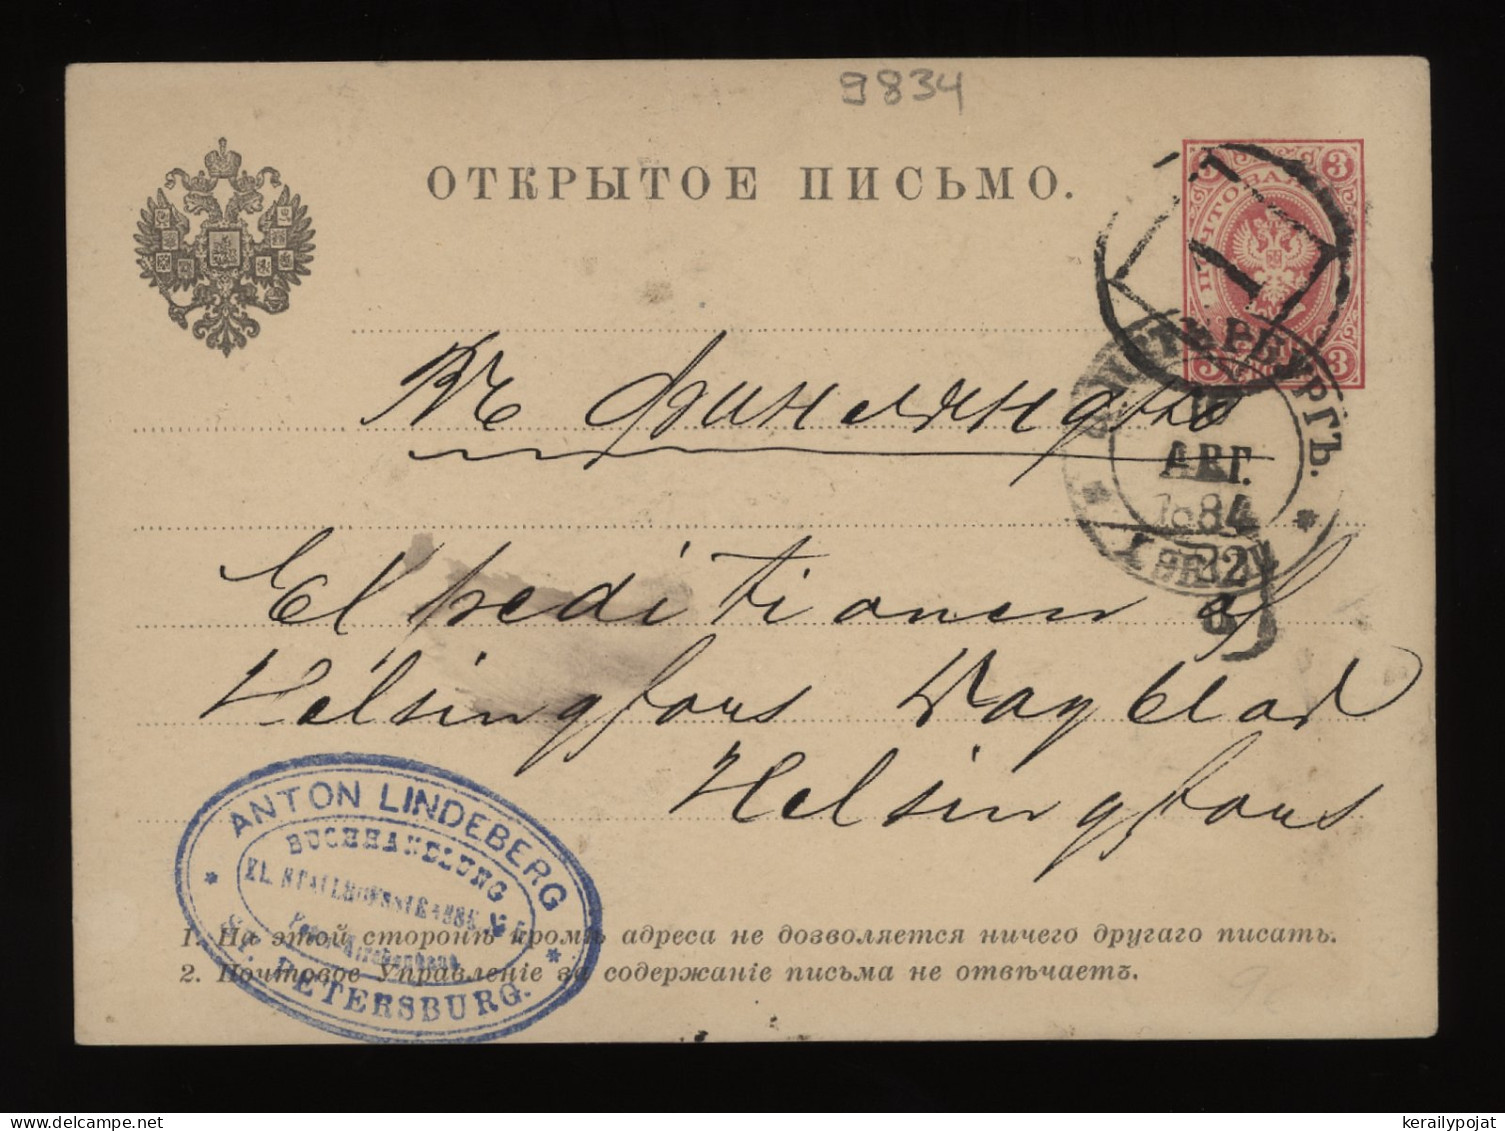 9834
ОТКРЫТОЕ ПИСЬМО.
3 3
ПОЧТОВАЯ
3 3
1
С.ПЕТЕРБУРГЪ.
АВГ.
1884
Въ Финляндію
Expeditionen af
Helsingfors Dagblad
Helsingfors
ANTON LINDEBERG
BUCHHANDLUNG
KL. STALLHOFSSTRASSE № 5
ST. PETERSBURG.
1. На этой сторонѣ кромѣ адреса не дозволяется ничего другаго писать.
2. Почтовое Управленіе за содержаніе письма не отвѣчаетъ.
© kerailypojat
kerailypojat.com